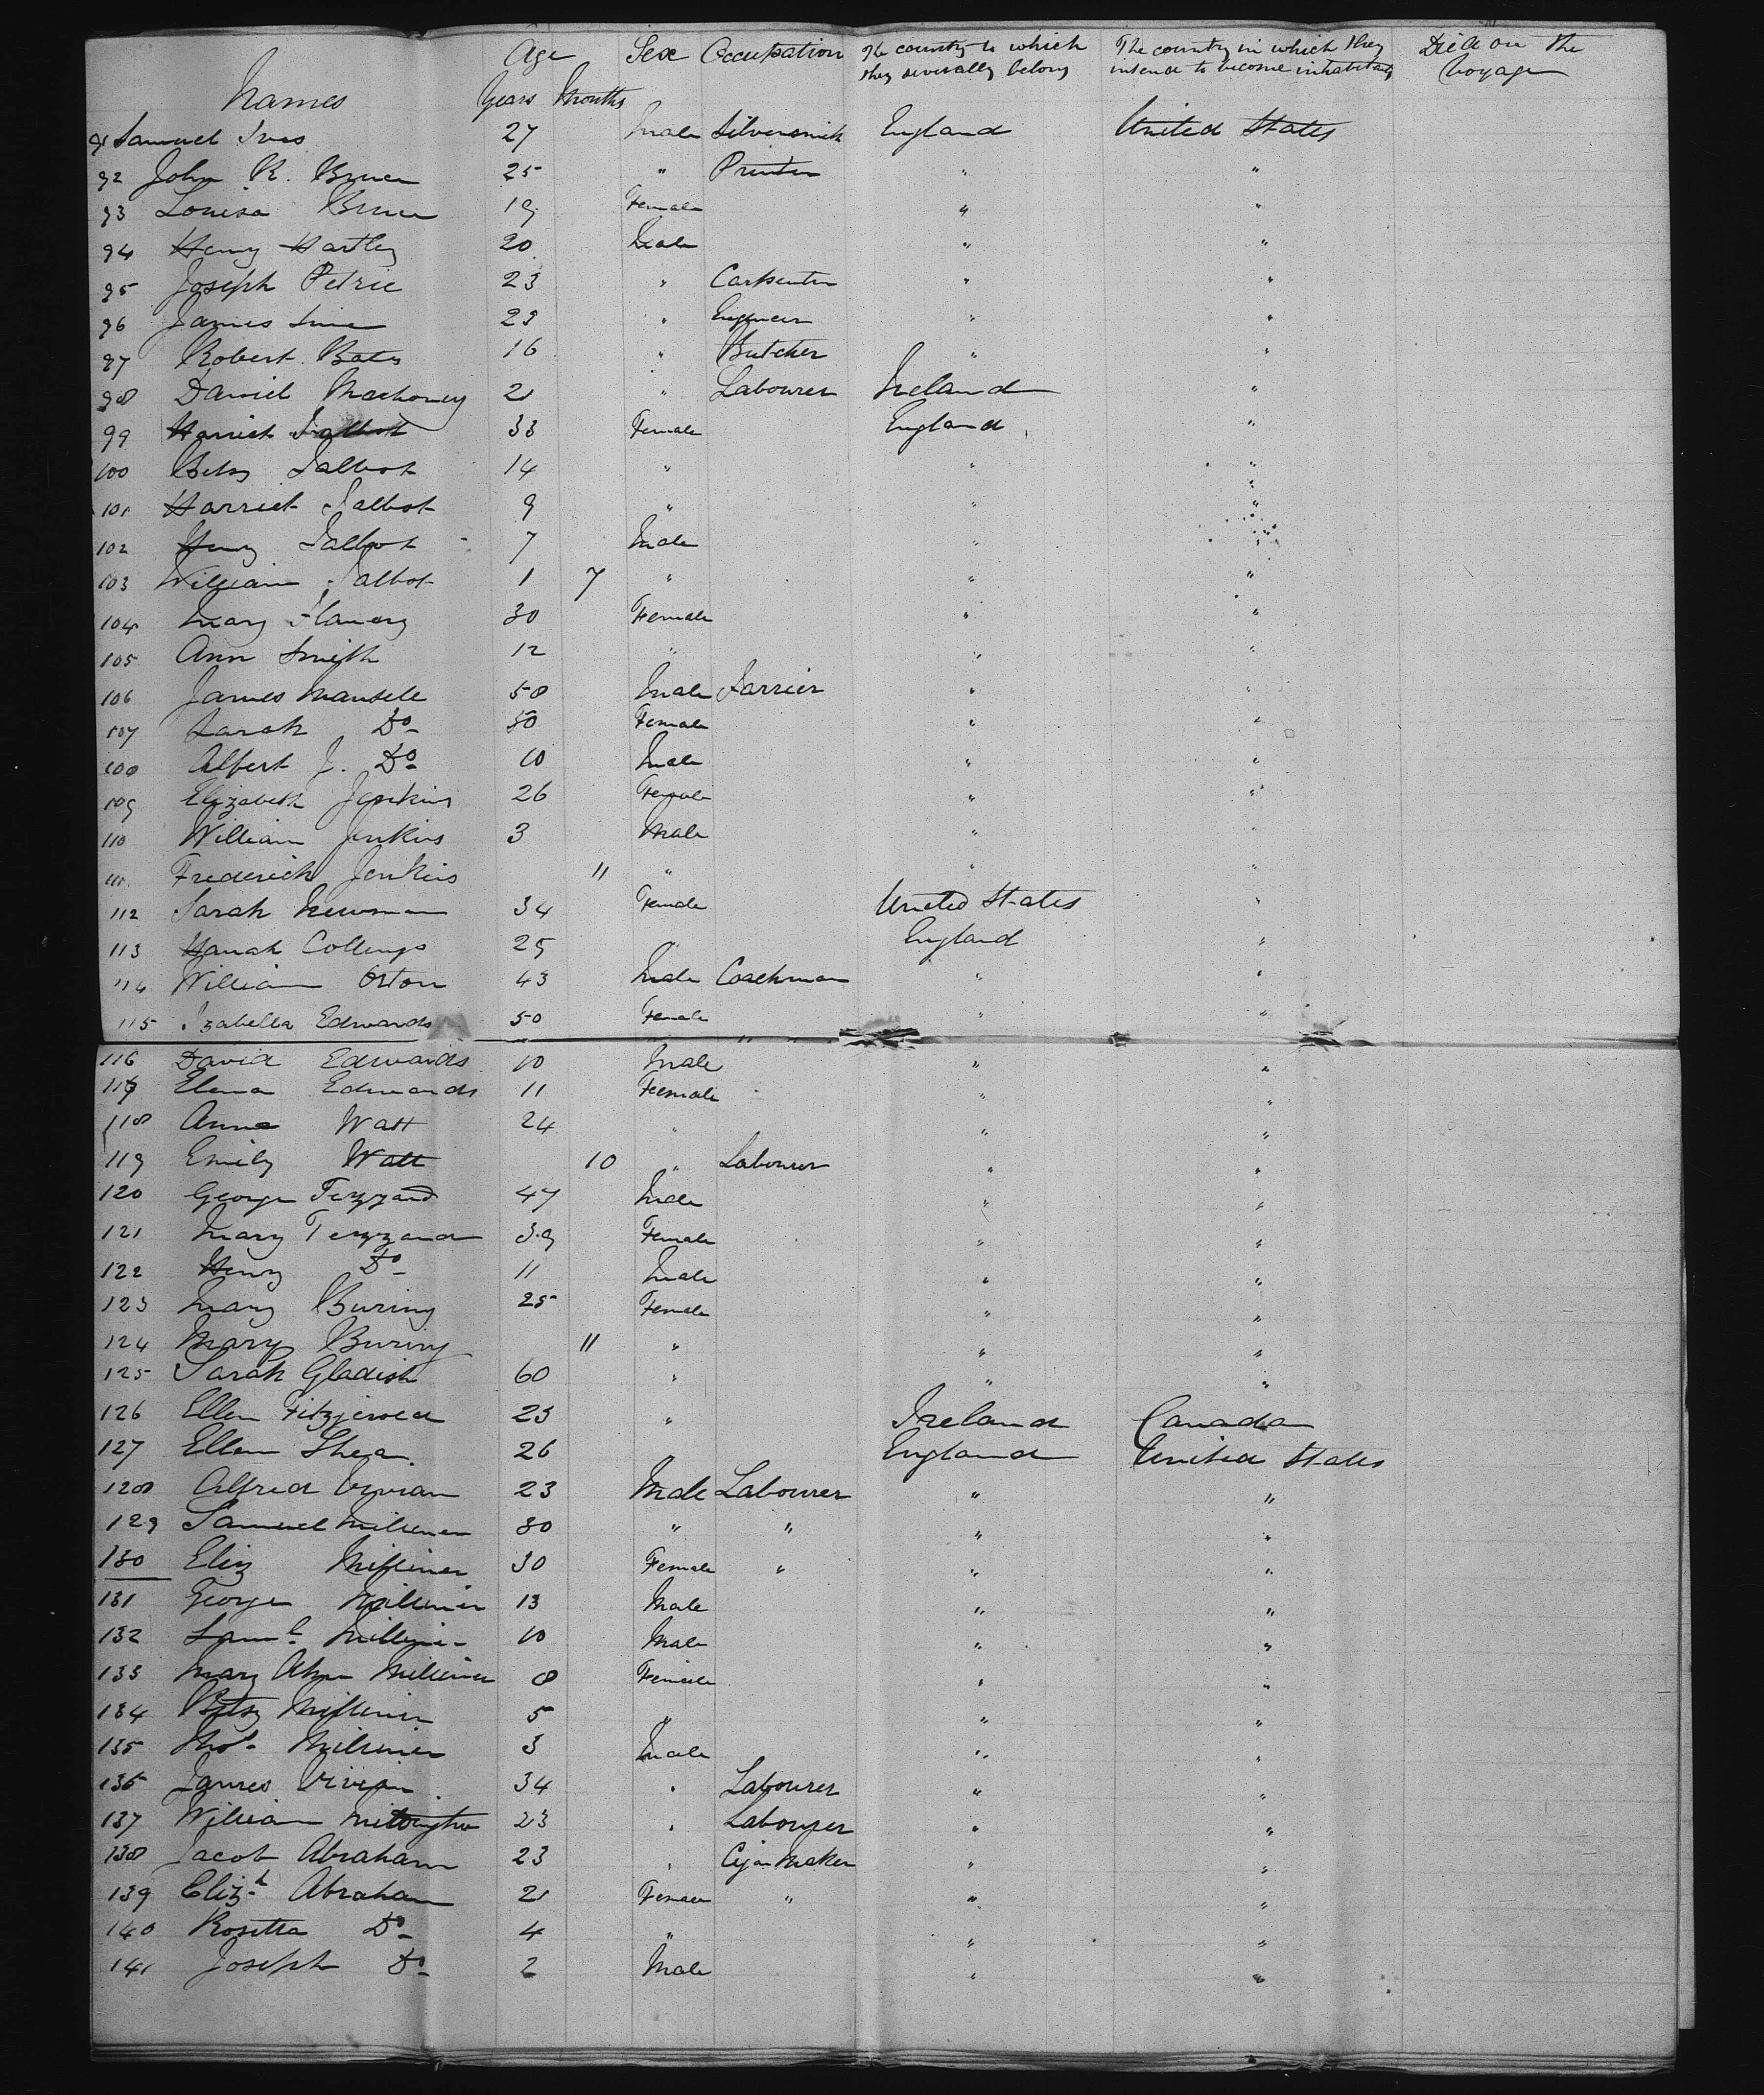 Names Age Sex Occupation The country to which The country in which they Died on the
Years Months they severally belong intend to become inhabitants Voyage
91 Samuel Ives 27 Male Silversmith England United States
92 John R. Bruce 25 " Printer " "
93 Louisa Bruce 19 Female " "
94 Henry Hartley 20 Male " "
95 Joseph Petrie 23 " Carpenter " "
96 James 29 " Engineer " "
97 Robert Bates 16 " Butcher " "
98 Daniel Mahoney 21 " Labourer Ireland "
99 Harriet Talbot 33 Female England "
100 Betsy Talbot 14 " " "
101 Harriet Talbot 9 " " "
102 Henry Talbot 7 Male " "
103 William Talbot 1 7 " " "
104 Mary Flanery 30 Female " "
105 Ann Smith 12 " " "
106 James Mansell 58 Male Farrier " "
107 Sarah Do 50 Female " "
108 Albert J. Do 10 Male " "
109 Elizabeth Jenkins 26 Female " "
110 William Jenkins 3 Male " "
111 Frederick Jenkins 11 " " "
112 Sarah Newman 34 Female United States "
113 Hanah Collings 25 " England "
114 William Orton 43 Male Coachman " "
115 Izabella Edwards 50 Female " "
116 David Edwards 10 Male " "
117 Elena Edwards 11 Female " "
118 Anna Watt 24 " " "
119 Emily Watt 10 " Labourer " "
120 George Tezzand 47 Male " "
121 Mary Tezzand 39 Female " "
122 Henry Do 11 Male " "
123 Mary Buring 25 Female " "
124 Mary Buring 11 " " "
125 Sarah Gladish 60 " " "
126 Ellen Fitzjerold 23 " Ireland Canada
127 Ellen Shea 26 " England United States
128 Alfred Vivian 23 Male Labourer " "
129 Samuel Milliner 30 " " " "
130 Eliz Milliner 30 Female " " "
131 George Milliner 13 Male " "
132 Saml Milliner 10 Male " "
133 Mary Ann Milliner 8 Female " "
134 Betsy Milliner 5 " " "
135 Thos Milliner 3 Male " "
136 James Vivian 34 " Labourer " "
137 William 23 " Labourer " "
138 Jacob Abraham 23 " Cigar Maker " "
139 Elizh Abraham 21 Female " " "
140 Rosetta Do 4 " " "
141 Joseph Do 2 Male " "